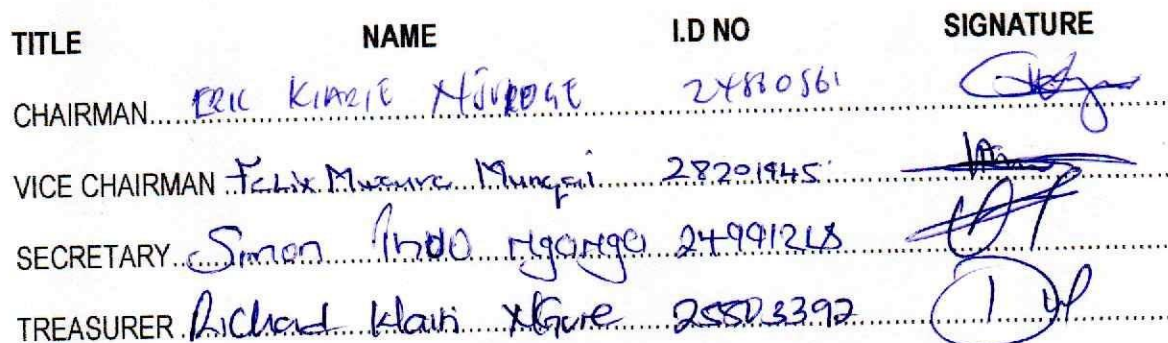 TITLE NAME I.D NO SIGNATURE
CHAIRMAN ERIC KIARIE NJOROGE 24830561
VICE CHAIRMAN Felix Mwaura Mungai 28201945
SECRETARY Simon Indo Ngonga
TREASURER Richard 25503392